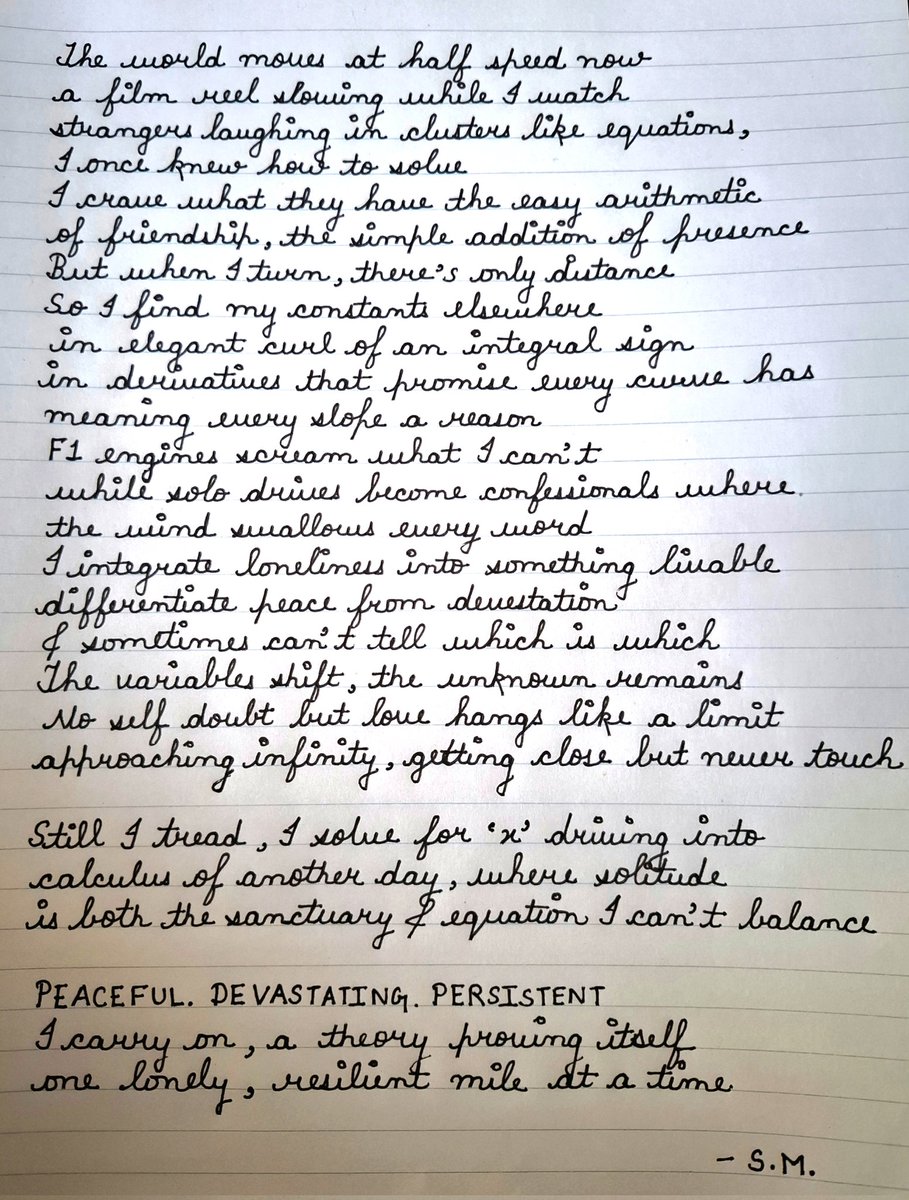 The world moves at half speed now
a film reel slowing while I watch
strangers laughing in clusters like equations,
I once knew how to solve
I crave what they have the easy arithmetic
of friendship, the simple addition of presence
But when I turn, there's only distance
So I find my constants elsewhere
in elegant curl of an integral sign
in derivatives that promise every curve has
meaning every slope a reason
F1 engines scream what I can't
while solo drives become confessionals where
the mind swallows every word
I integrate loneliness into something livable
differentiate peace from devestation
& sometimes can't tell which is which
The variables shift, the unknown remains
No self doubt but love hangs like a limit
approaching infinity, getting close but never touch
Still I tread, I solve for 'x' driving into
calculus of another day, where solitude
is both the sanctuary & equation I can't balance
PEACEFUL. DEVASTATING. PERSISTENT
I carry on, a theory proving itself
one lonely, resilient mile at a time
- S.M.